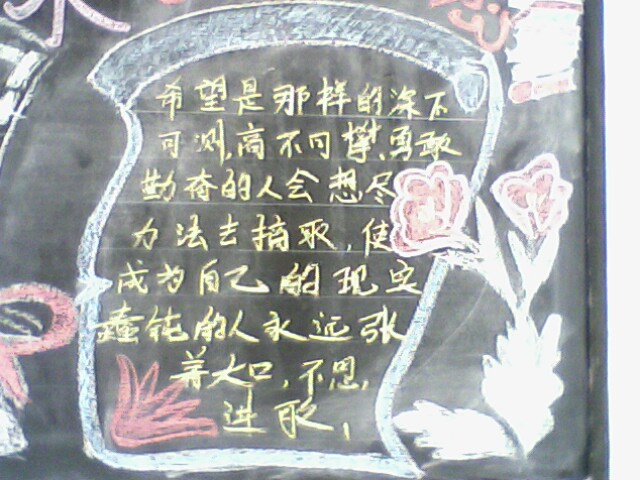 希望是那样的深不
可测,高不可攀,勇敢
勤奋的人会想尽
力法去摘取,使
成为自己的现实
蠢钝的人永远张
着大口,不思,
进取,